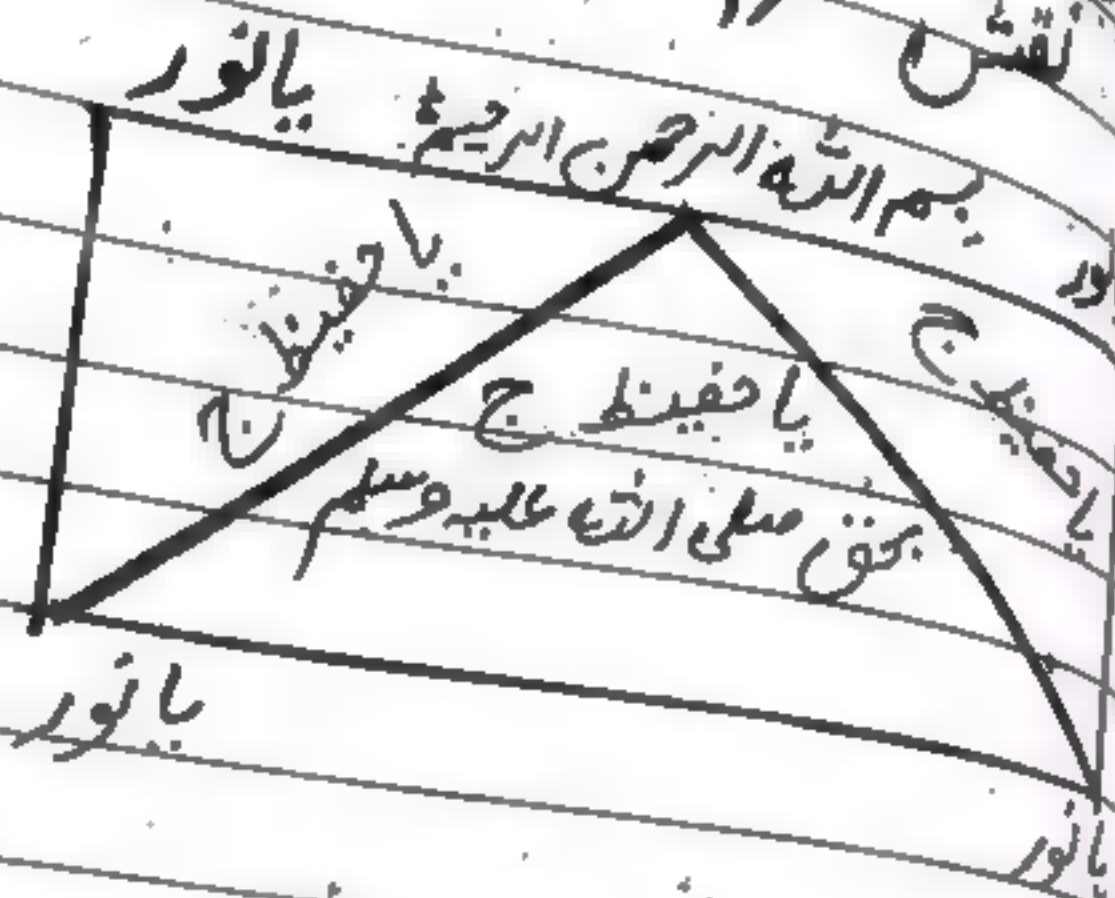 نقش
بسم اللہ الرحمن الرحیم
یا نور
یا حفیظ ج
یا حفیظ ج
یا حفیظ ج
بحق صلی اللہ علیہ وسلم
یا نور
یا نور